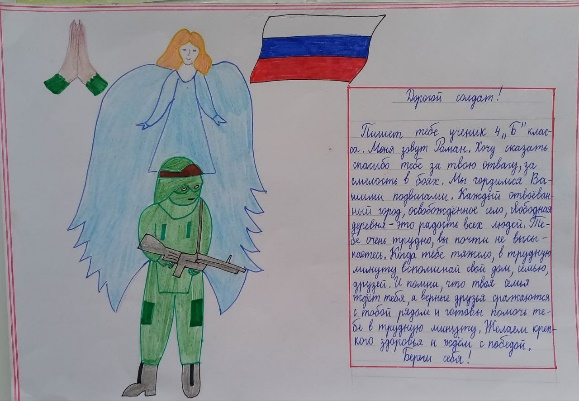 Дорогой солдат!
Пишет тебе ученик 4 „Б" клас-
са. Меня зовут Роман. Хочу сказать
спасибо тебе за твою отвагу, за
смелость в боях. Мы гордимся Ва-
шими подвигами. Каждый отвоёван-
ный город, освобождённое село, свободная
деревня - это радость всех людей. Те-
бе очень трудно, вы почти не высы-
паетесь. Когда тебе тяжело, в трудную
минуту вспоминай свой дом, семью,
друзей. И помни, что твоя семья
ждёт тебя, а верные друзья сражаются
с тобой рядом и готовы помочь те-
бе в трудную минуту. Желаем креп-
кого здоровья и ждём с победой.
Береги себя!